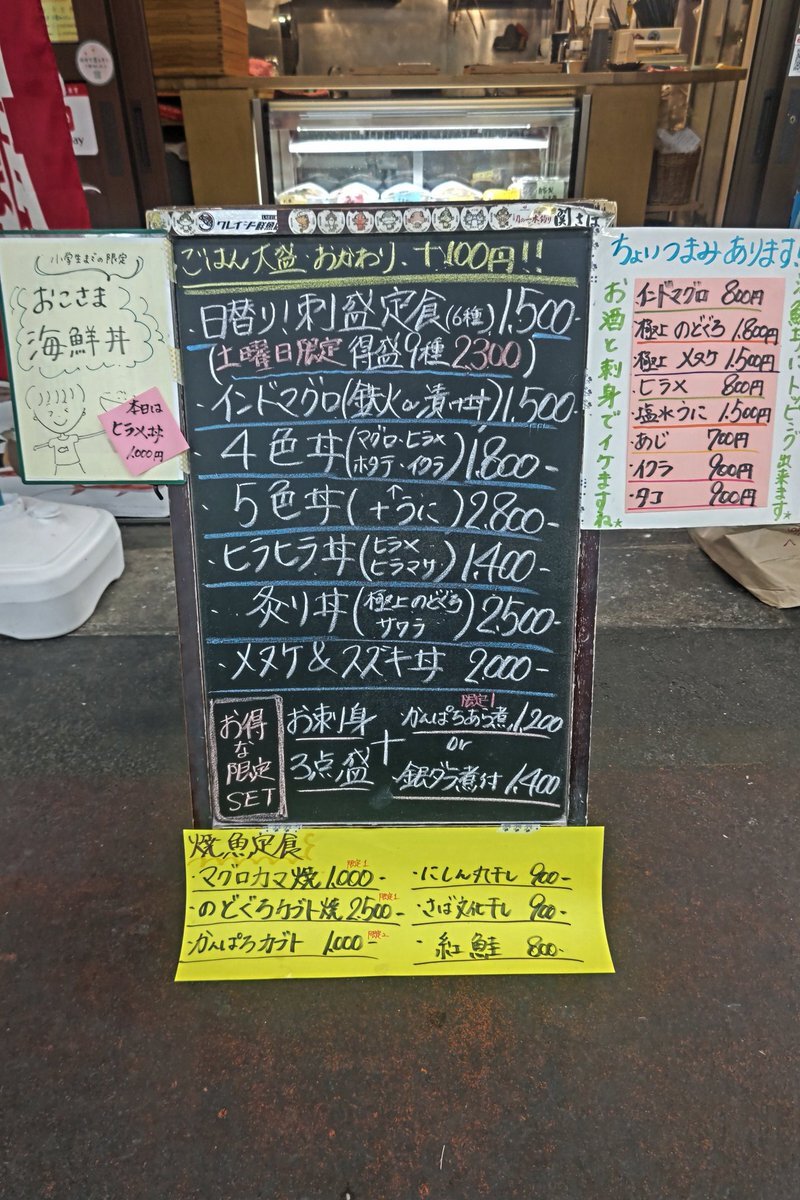 クレイジー鮮魚店
ごはん大盛・おかわり、+100円!!
・日替り!刺盛定食(6種)1,500-
(土曜日限定 得盛9種 2,300)
・インドマグロ(鉄火or漬け丼)1,500
・4色丼(マグロ・ヒラメ・ホタテ・イクラ)1,800-
・5色丼(↑+うに)2,800-
・ヒラヒラ丼(ヒラメ ヒラマサ)1,400-
・炙り丼(極上のどぐろ サワラ)2,500-
・メヌケ&スズキ丼 2,000-
お得な限定SET
お刺身3点盛
+
限定1
かんぱちあら煮 1,200
or
銀ダラ煮付 1,400
小学生までの限定
おこさま
海鮮丼
本日は
ヒラメ丼
1,000円
ちょいつまみあります!!
インドマグロ 800円
極上のどぐろ 1,800円
極上メヌケ 1,500円
ヒラメ 800円
塩水うに 1,500円
あじ 700円
イクラ 900円
タコ 900円
お酒と刺身でイケますね☆
トッピング出来ます☆
焼魚定食
・マグロカマ焼 1,000- 限定1
・のどぐろカブト焼 2,500- 限定1
・かんぱちカブト 1,000- 限定2
・にしん丸干し 900-
・さば文化干し 900-
・紅鮭 800-